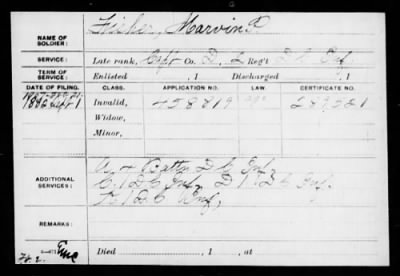 NAME OF SOLDIER: Fisher, Marvin P.
SERVICE: Late rank, Capt Co. D, 2 Reg't D.C. Inf.
TERM OF SERVICE: Enlisted , 1 Discharged , 1
DATE OF FILING. CLASS. APPLICATION NO. LAW. CERTIFICATE NO.
1882 Sept 1 Invalid, 458819 289521
Widow,
Minor,
ADDITIONAL SERVICES: A 4 Battn D.C. Inf.
C 1 D.C. Inf, D 1 D.C. Inf.
1 D.C. Inf,
REMARKS:
Died , 1 , at